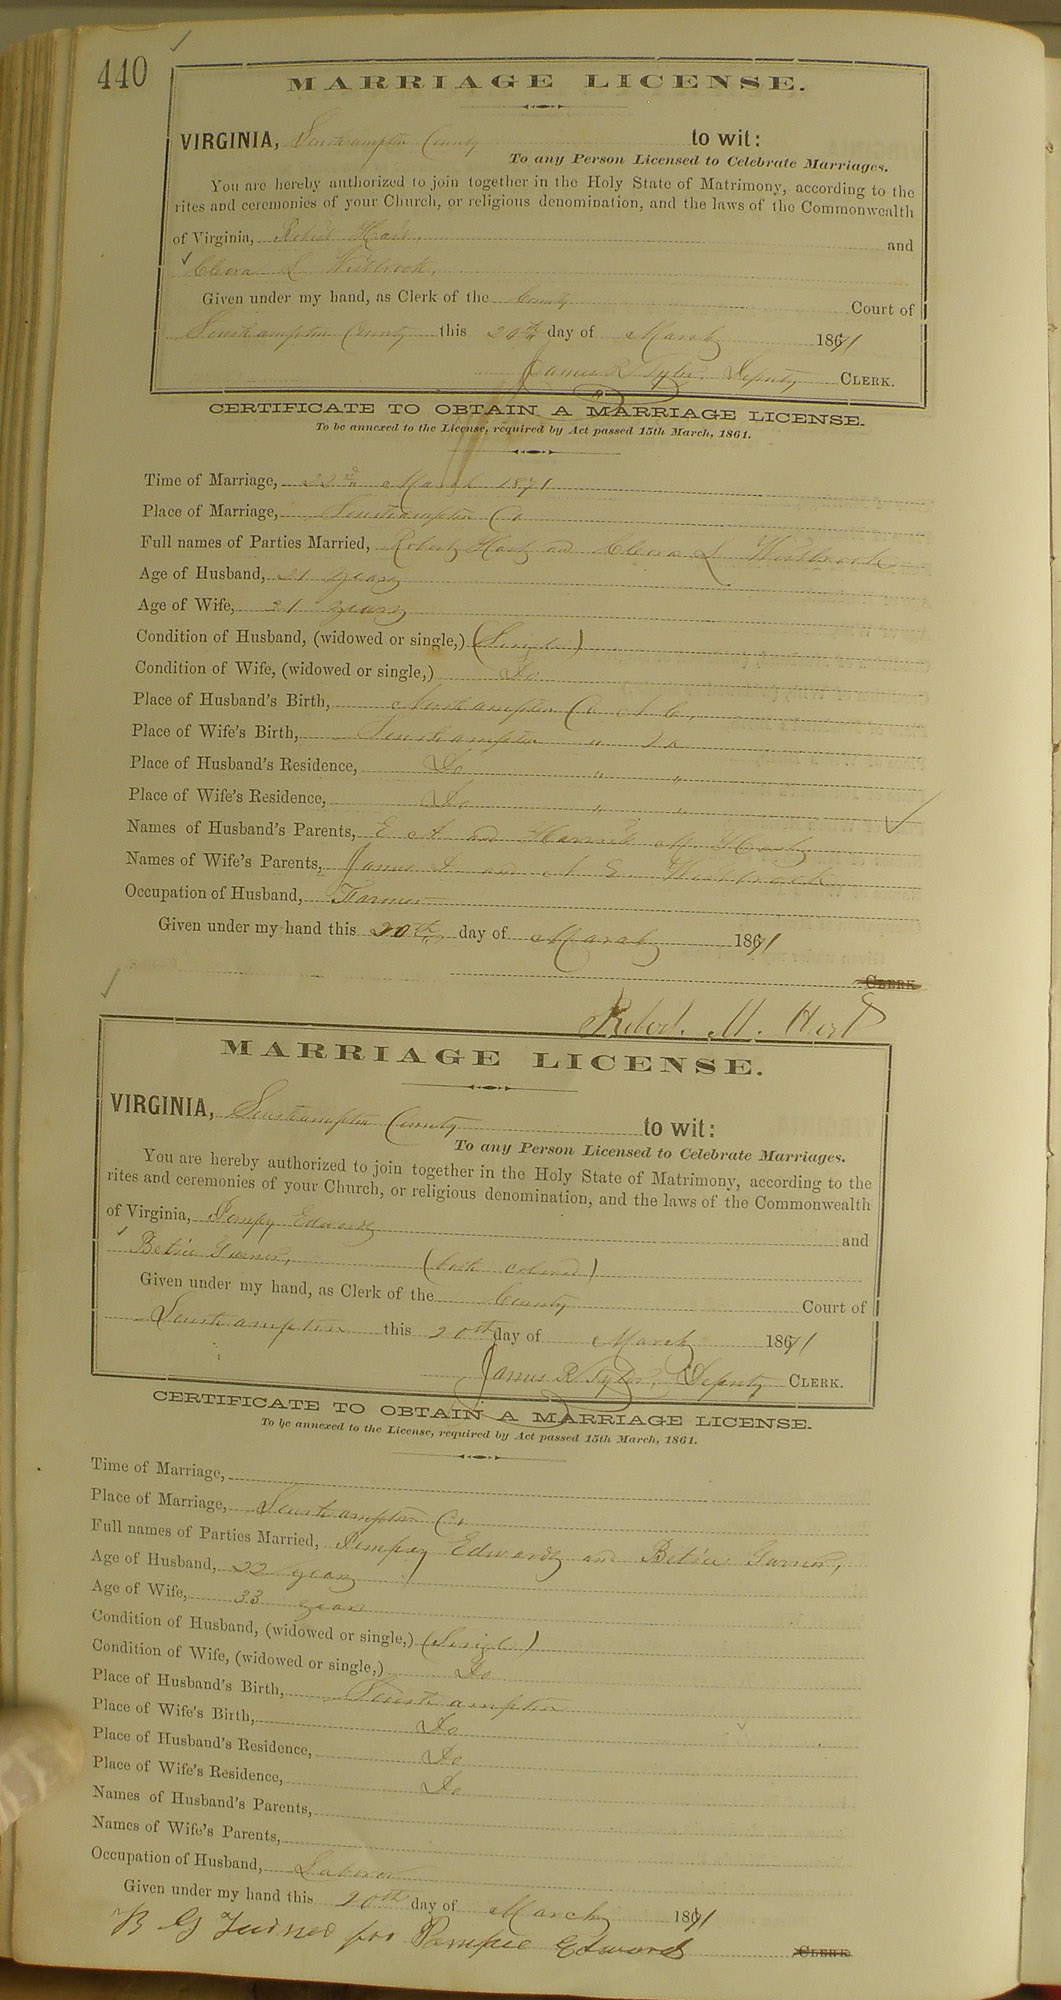 440
MARRIAGE LICENSE.
VIRGINIA, Southampton County to wit:
To any Person Licensed to Celebrate Marriages.
You are hereby authorized to join together in the Holy State of Matrimony, according to the
rites and ceremonies of your Church, or religious denomination, and the laws of the Commonwealth
of Virginia, Robert Hart, and
Cleora L Westbrook,
Given under my hand, as Clerk of the County Court of
Southampton County this 20th day of March 1871
James R Tyler, Deputy CLERK.
CERTIFICATE TO OBTAIN A MARRIAGE LICENSE.
To be annexed to the License, required by Act passed 15th March, 1861.
Time of Marriage, 22nd March 1871
Place of Marriage, Southampton Co
Full names of Parties Married, Robert Hart and Cleora L Westbrook
Age of Husband, 21 years
Age of Wife, 21 years
Condition of Husband, (widowed or single,) (Single)
Condition of Wife, (widowed or single,) Do
Place of Husband's Birth, Northampton Co N C,
Place of Wife's Birth, Southampton " Va
Place of Husband's Residence, Do " "
Place of Wife's Residence, Do " "
Names of Husband's Parents, E A and Harriet M Hart
Names of Wife's Parents, James D and E Westbrook
Occupation of Husband, Farmer
Given under my hand this 20th day of March 1871
CLERK
Robert M. Hart
MARRIAGE LICENSE.
VIRGINIA, Southampton County to wit:
To any Person Licensed to Celebrate Marriages.
You are hereby authorized to join together in the Holy State of Matrimony, according to the
rites and ceremonies of your Church, or religious denomination, and the laws of the Commonwealth
of Virginia, Pompy Edwards and
Betsie Turner, (both colored)
Given under my hand, as Clerk of the County Court of
Southampton this 20th day of March 1871
James R Tyler, Deputy CLERK.
CERTIFICATE TO OBTAIN A MARRIAGE LICENSE.
To be annexed to the License, required by Act passed 15th March, 1861.
Time of Marriage,
Place of Marriage, Southampton Co
Full names of Parties Married, Pompey Edwards and Betsie Turner,
Age of Husband, 22 years
Age of Wife, 33 years
Condition of Husband, (widowed or single,) (Single)
Condition of Wife, (widowed or single,) Do
Place of Husband's Birth, Southampton
Place of Wife's Birth, Do
Place of Husband's Residence, Do
Place of Wife's Residence, Do
Names of Husband's Parents,
Names of Wife's Parents,
Occupation of Husband, Laborer
Given under my hand this 20th day of March 1871
B G Turner for Pompie Edwards CLERK